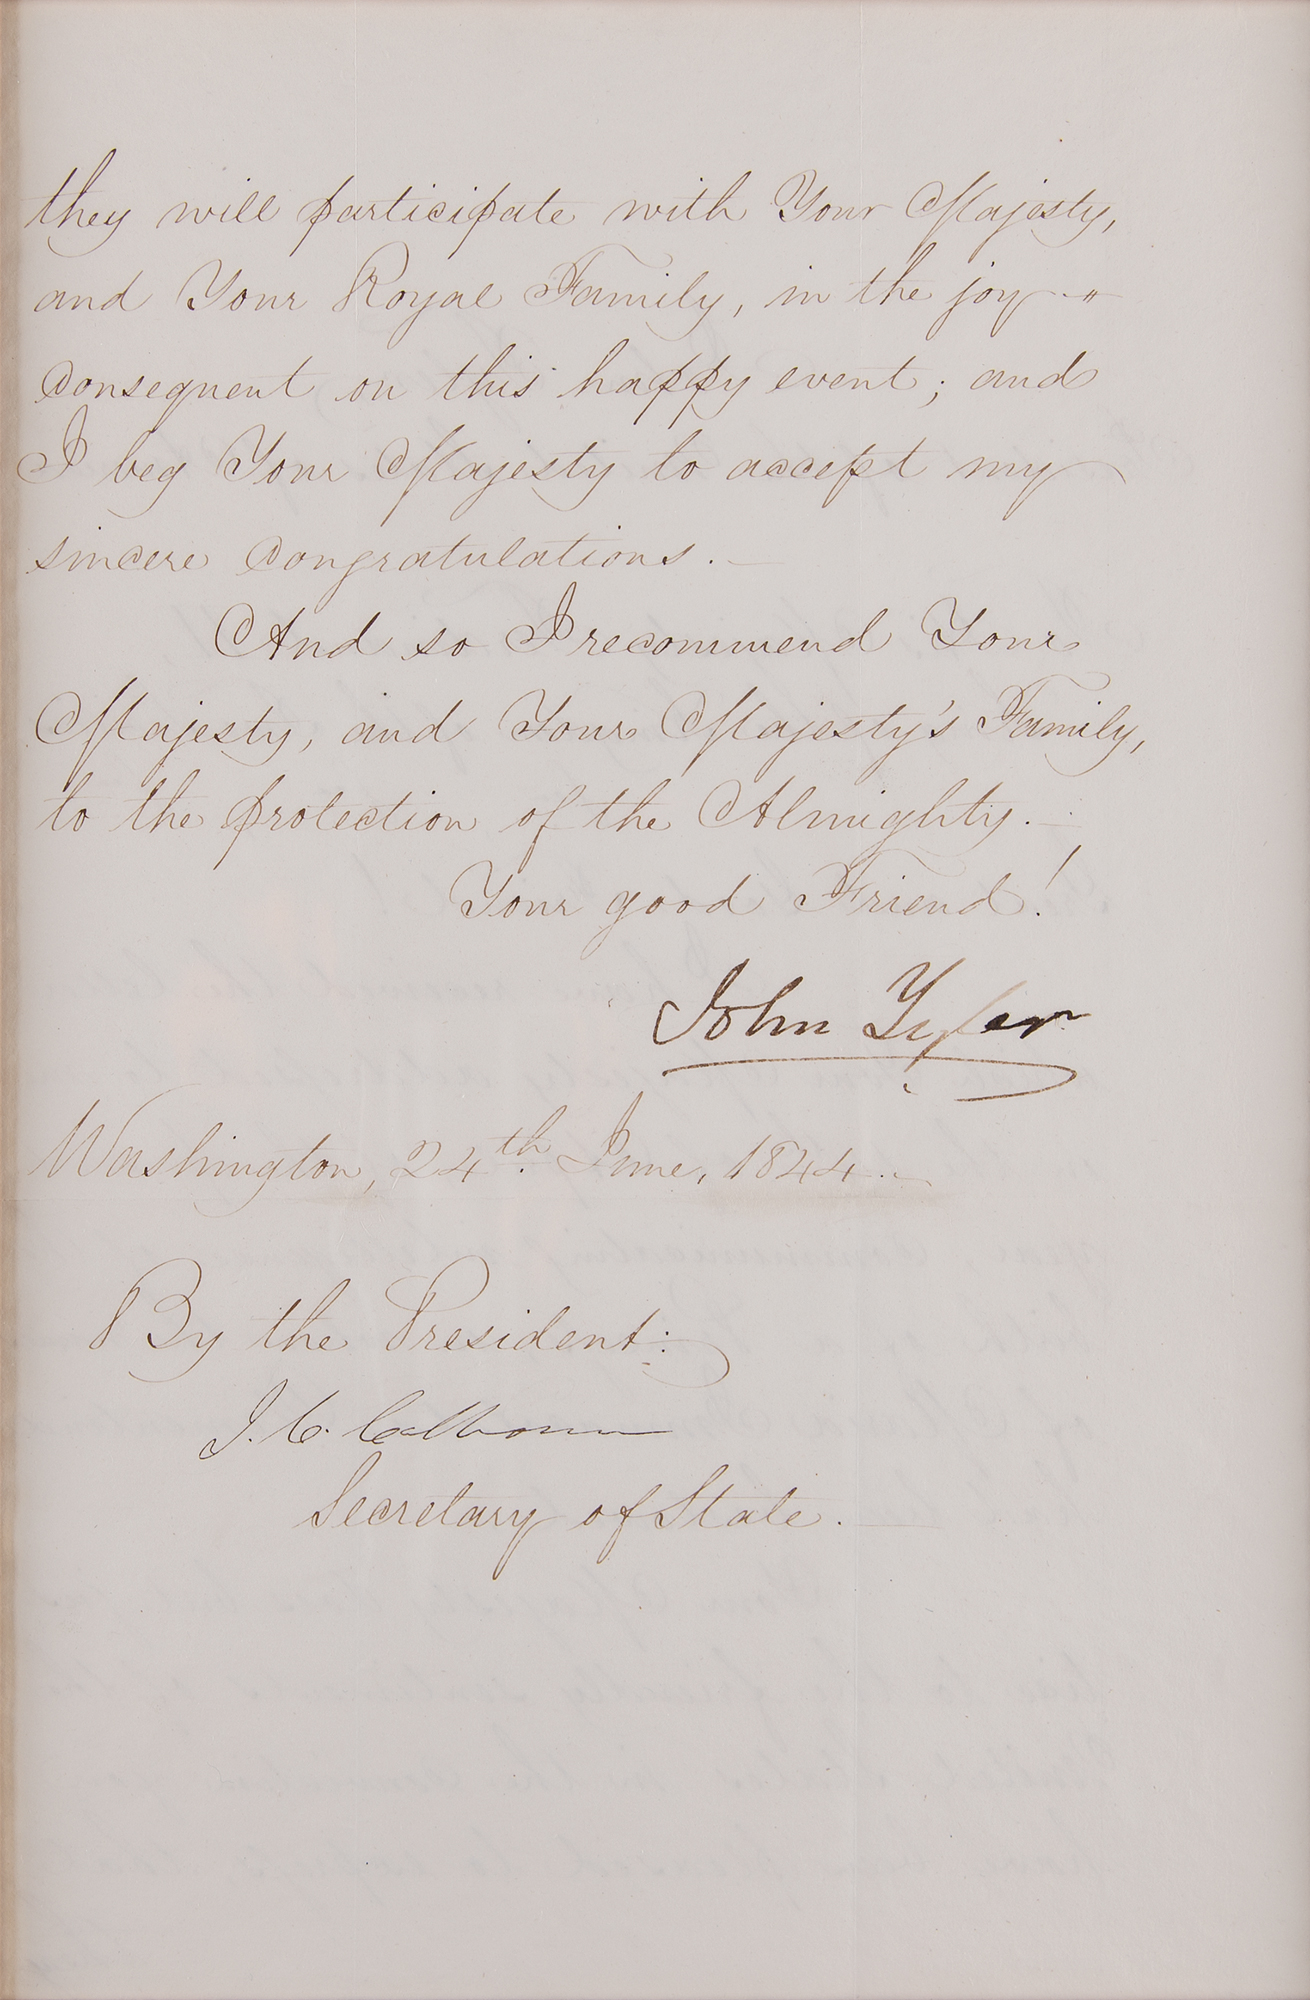 they will participate with Your Majesty,
and Your Royal Family, in the joy
consequent on this happy event; and
I beg Your Majesty to accept my
sincere congratulations.
And so I recommend Your
Majesty, and Your Majesty's Family,
to the protection of the Almighty.
Your good Friend!
John Tyler
Washington, 24th. June, 1844.
By the President:
J. C. Calhoun
Secretary of State.